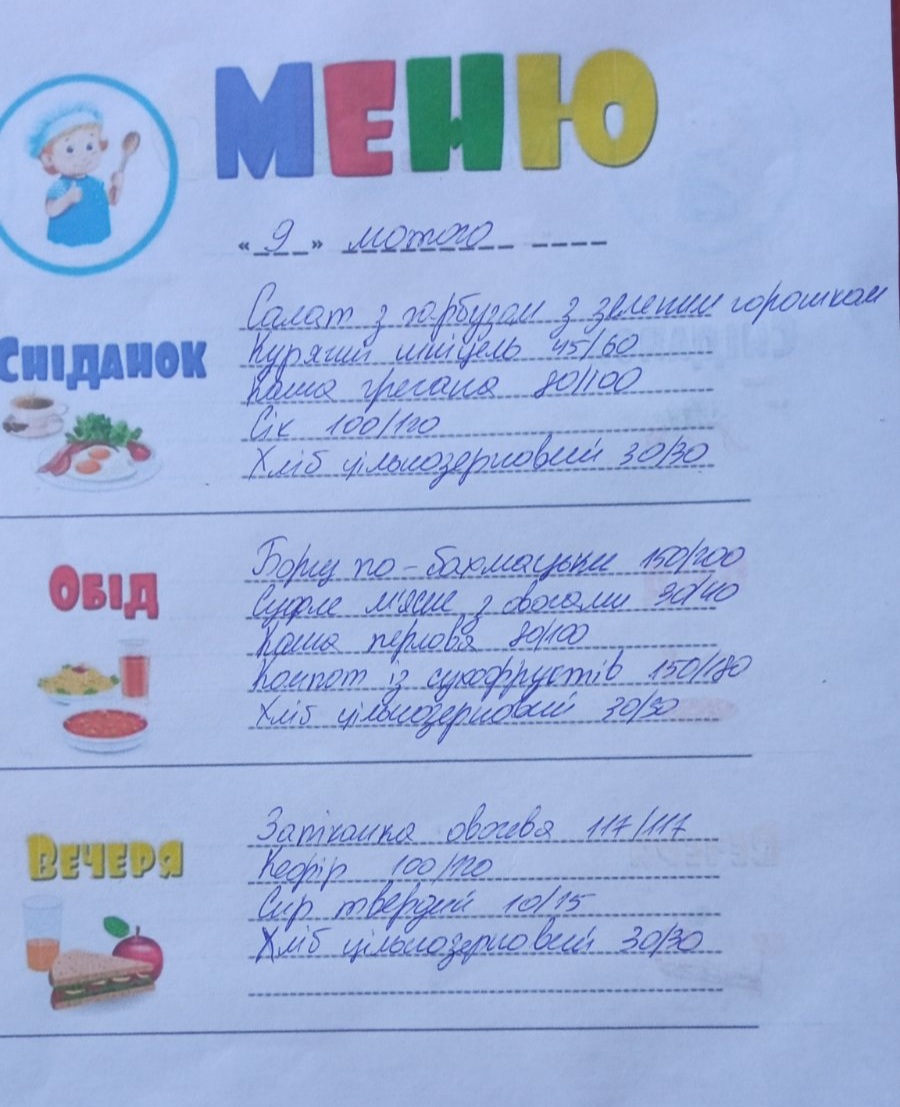 МЕНЮ
« 9 » лютого
СНІДАНОК
Салат з гарбузом з зеленим горошком
Курячий шніцель 45/60
Каша гречана 80/100
Сік 100/120
Хліб цільнозерновий 30/30
ОБІД
Борщ по-бахмацьки 150/200
Суфле м'ясне з овочами 30/40
Каша перлова 80/100
Компот із сухофруктів 150/180
Хліб цільнозерновий 30/30
ВЕЧЕРЯ
Запіканка овочева 117/117
Кефір 100/120
Сир твердий 10/15
Хліб цільнозерновий 30/30